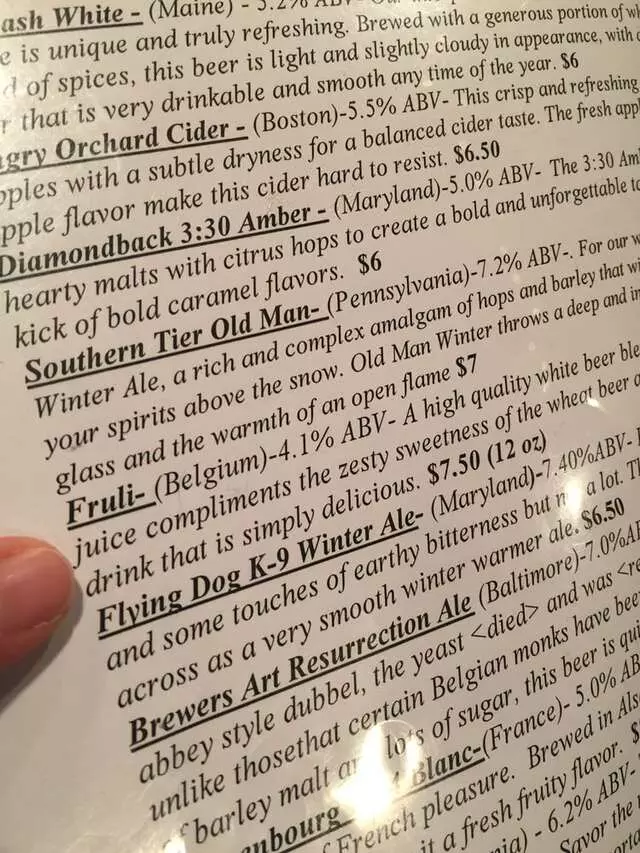 ash White - (Maine) - 5.2% ABV
e is unique and truly refreshing. Brewed with a generous portion of
d of spices, this beer is light and slightly cloudy in appearance, with
r that is very drinkable and smooth any time of the year. $6
ngry Orchard Cider - (Boston)-5.5% ABV- This crisp and refreshing
pples with a subtle dryness for a balanced cider taste. The fresh
pple flavor make this cider hard to resist. $6.50
Diamondback 3:30 Amber - (Maryland)-5.0% ABV- The 3:30
hearty malts with citrus hops to create a bold and unforgettable
kick of bold caramel flavors. $6
Southern Tier Old Man- (Pennsylvania)-7.2% ABV-. For our
Winter Ale, a rich and complex amalgam of hops and barley that
your spirits above the snow. Old Man Winter throws a deep and
glass and the warmth of an open flame $7
Fruli- (Belgium)-4.1% ABV- A high quality white beer
juice compliments the zesty sweetness of the wheat beer
drink that is simply delicious. $7.50 (12 oz)
Flying Dog K-9 Winter Ale- (Maryland)-7.40%ABV-
and some touches of earthy bitterness but a lot.
across as a very smooth winter warmer ale. $6.50
Brewers Art Resurrection Ale (Baltimore)-7.0%
abbey style dubbel, the yeast <died> and was
unlike thosethat certain Belgian monks have
barley malt lots of sugar, this beer is
Blanc-(France)- 5.0%
French pleasure. Brewed in
it a fresh fruity flavor.
- 6.2% ABV-
Savor the